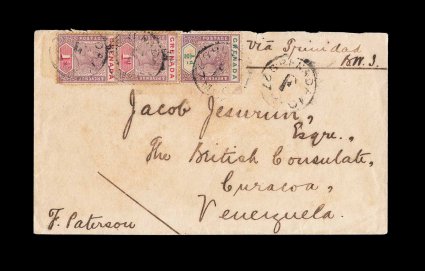 GRENADA
GRENADA
GRENADA
via Trinidad
B.W.I.
Jacob Jesurun,
Esqre.,
The British Consulate,
Curacoa,
Venezuela.
F. Paterson